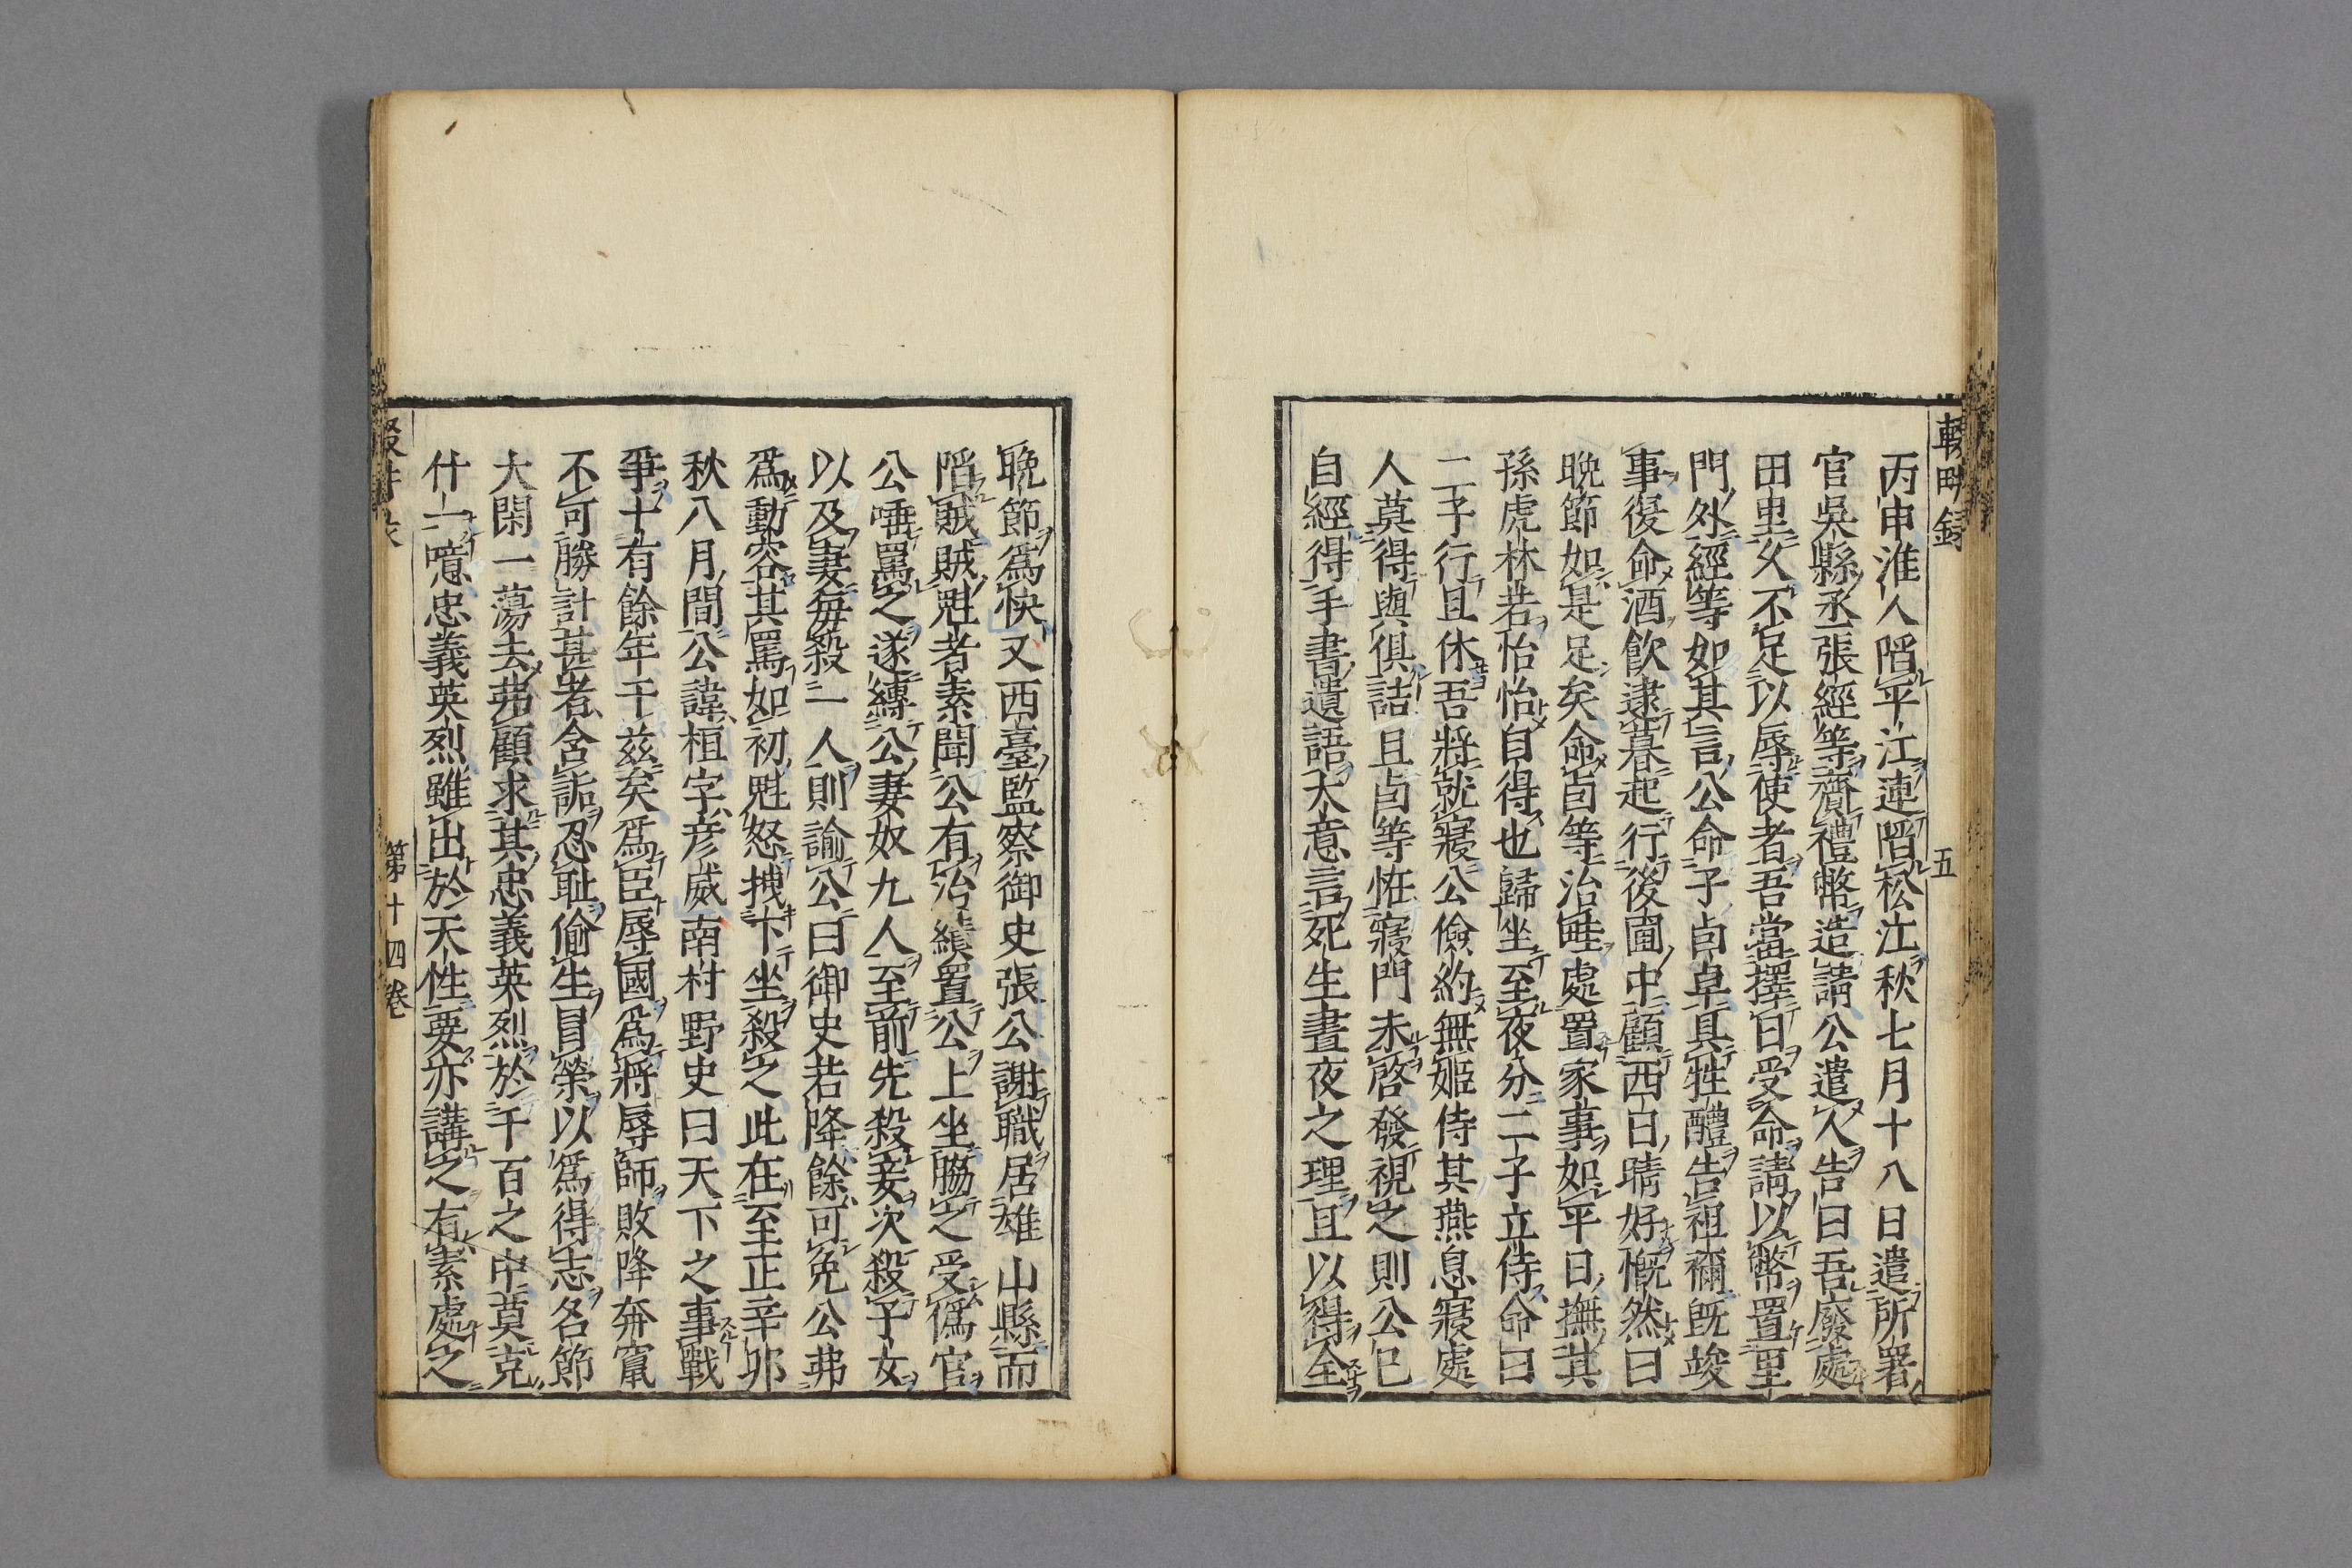 輟畊録
五
丙申淮人陷平江連陷松江秋七月十八日遣所署
官吳縣丞張經等齎禮幣造請公遣人告曰吾廢處
田里久不足以辱使者吾當擇日受命請以幣置里
門外經等如其言公命子卣卓具牲醴告祖禰既竣
事復命酒飲逮暮起行後圃中顧西白日晴好慨然曰
晩節如是足矣命卣等治畦處置家事如平日撫其
孫虎林若怡怡自得也歸坐至夜分二子立侍命曰
二子行且休吾將就寢公儉約無姬侍其燕息寢處
人莫得與俱詰旦卣等恠寢門未啓發視之則公已
自經得手書遺語大意言死生晝夜之理且以得全
晩節爲快又西臺監察御史張公謝職居雄山縣而
陷賊賊魁者素聞公有治績置公上坐脇之受僞官
公唾罵之遂縛公妻奴九人至前先殺妾次殺子女
以及妻每殺一人則諭公曰御史若降餘可免公弗
爲動容其罵如初魁怒拽下坐殺之此在至正辛卯
秋八月間公諱桓字彦威南村野史曰天下之事戰
爭十有餘年于茲矣爲臣辱國爲將辱師敗降奔竄
不可勝計甚者含詬忍耻偷生冒榮以爲得志名節
大閑一蕩去弗顧求其忠義英烈於千百之中莫克
什一噫忠義英烈雖出於天性要亦講之有素處之
第十四卷